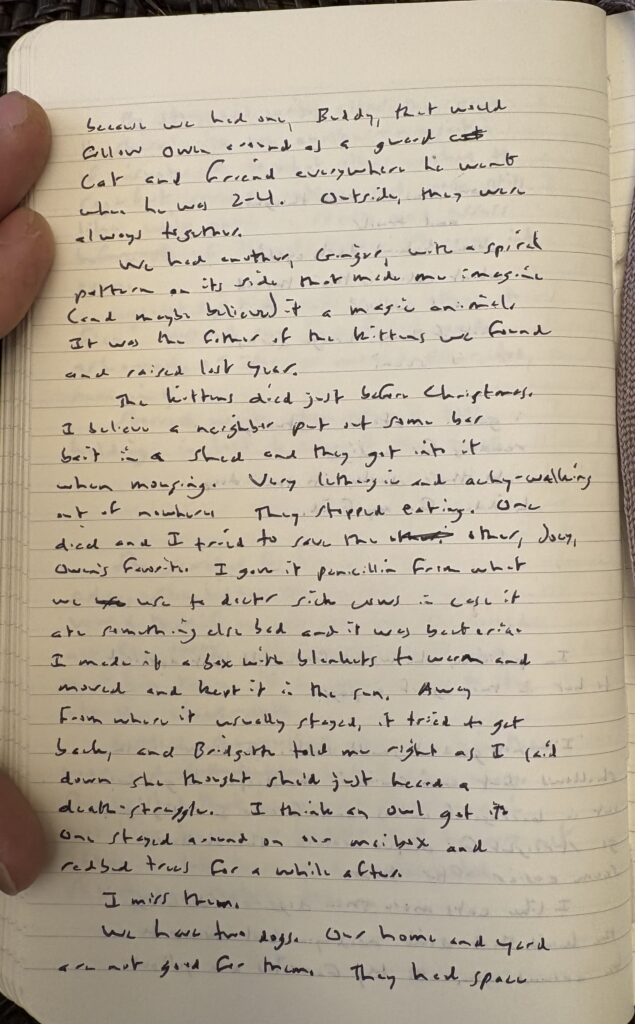 because we had one, Buddy, that would
follow Owen around as a guard
cat and friend everywhere he went
when he was 2-4. Outside, they were
always together.
We had another, Ginger, with a spiral
pattern on its side that made me imagine
(and maybe believe) it a magic animal.
It was the father of the kittens we found
and raised last year.
The kittens died just before Christmas.
I believe a neighbor put out some bar
bait in a shed and they got into it
when mousing. Very lethargic and achy-walking
out of nowhere. They stopped eating. One
died and I tried to save the other, Joey,
Owen's favorite. I gave it penicillin from what
we use to doctor sick cows in case it
ate something else bad and it was bacteria.
I made it a box with blankets to warm and
moved and kept it in the sun. Away
from where it usually stayed, it tried to get
back, and Bridgette told me right as I laid
down she thought she'd just heard a
death-struggle. I think an owl got it.
One stayed around on our mailbox and
redbud trees for a while after.
I miss them.
We have two dogs. Our home and yard
are not good for them. They had space